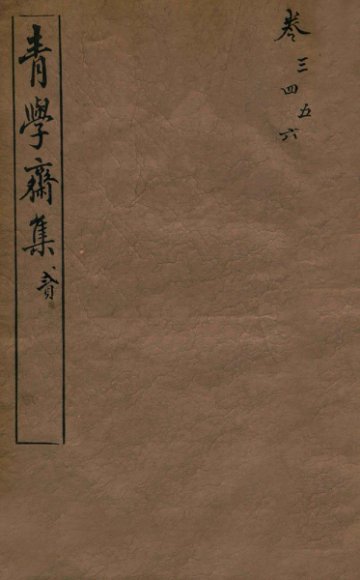 卷三四五六
青學齋集 貳